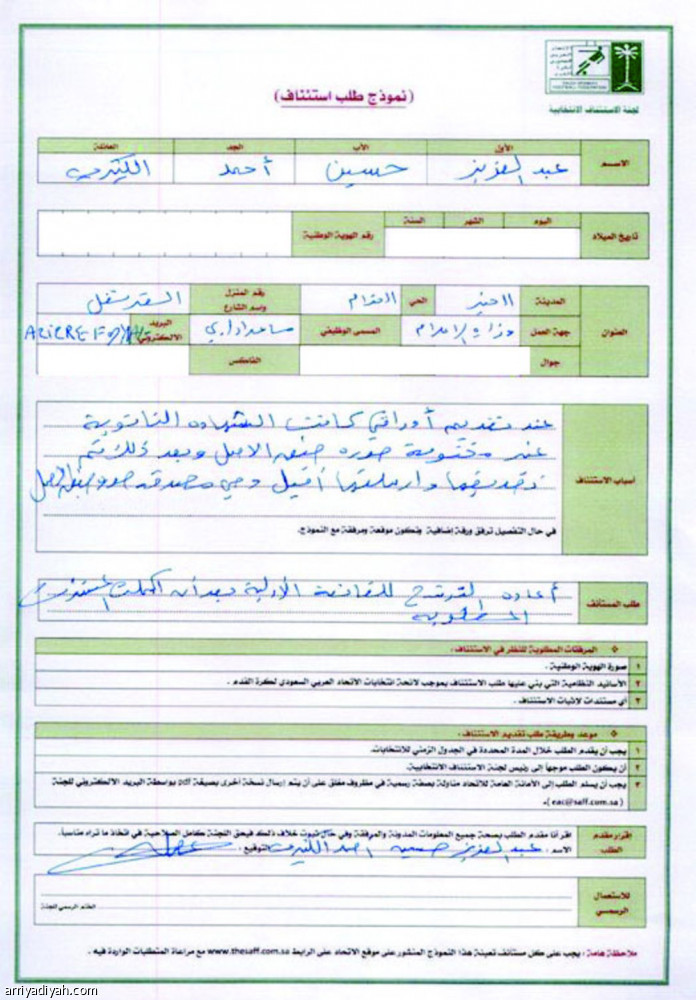 لجنة الاستئناف الانتخابية
(نموذج طلب استئناف)
الاسم الأول الأب الجد العائلة
عبد العزيز حسين أحمد
تاريخ الميلاد اليوم الشهر السنة رقم الهوية الوطنية
العنوان المدينة الحي رقم المنزل واسم الشارع
جهة العمل المسمى الوظيفي البريد الالكتروني
جوال الفاكس
أسباب الاستئناف
عند تقديم أوراقي كانت الشهادة الثانوية
غير مختومة صوره طبق الاصل وبعد ذلك تم
تصديقها وارسلتها وهي مصدقه طبق الاصل
في حال التفصيل ترفق ورقة إضافية وتكون موقعة ومرفقة مع النموذج.
طلب المستأنف
أعاده للقائمة الأولية بعد أن اكملت
المطلوبه
❖ المرفقات المطلوبة للنظر في الاستئناف:
١ صورة الهوية الوطنية.
٢ الأسانيد النظامية التي بني عليها طلب الاستئناف بموجب لائحة انتخابات الاتحاد العربي السعودي لكرة القدم.
٣ أي مستندات لإثبات الاستئناف.
❖ موعد وطريقة طلب تقديم الاستئناف:
١ يجب أن يقدم الطلب خلال المدة المحددة في الجدول الزمني للانتخابات.
٢ أن يكون الطلب موجهاً إلى رئيس لجنة الاستئناف الانتخابية.
٣ يجب أن يسلم الطلب إلى الأمانة العامة للاتحاد مناولة بصفة رسمية في مظروف مغلق على أن يتم إرسال نسخة أخرى بصيغة pdf بواسطة البريد الالكتروني للجنة
(eac@saff.com.sa).
إقرار مقدم الطلب
اقر أنا مقدم الطلب بصحة جميع المعلومات المدونة والمرفقة وفي حال ثبوت خلاف ذلك فيحق للجنة كامل الصلاحية في اتخاذ ما تراه مناسباً.
الاسم: عبد العزيز حسين احمد التوقيع:
للاستعمال الرسمي
الختم الرسمي للجنة
ملاحظة هامة: يجب على كل مستأنف تعبئة هذا النموذج المنشور على موقع الاتحاد على الرابط www.thesaff.com.sa مع مراعاة المتطلبات الواردة فيه.
arriyadiyah.com